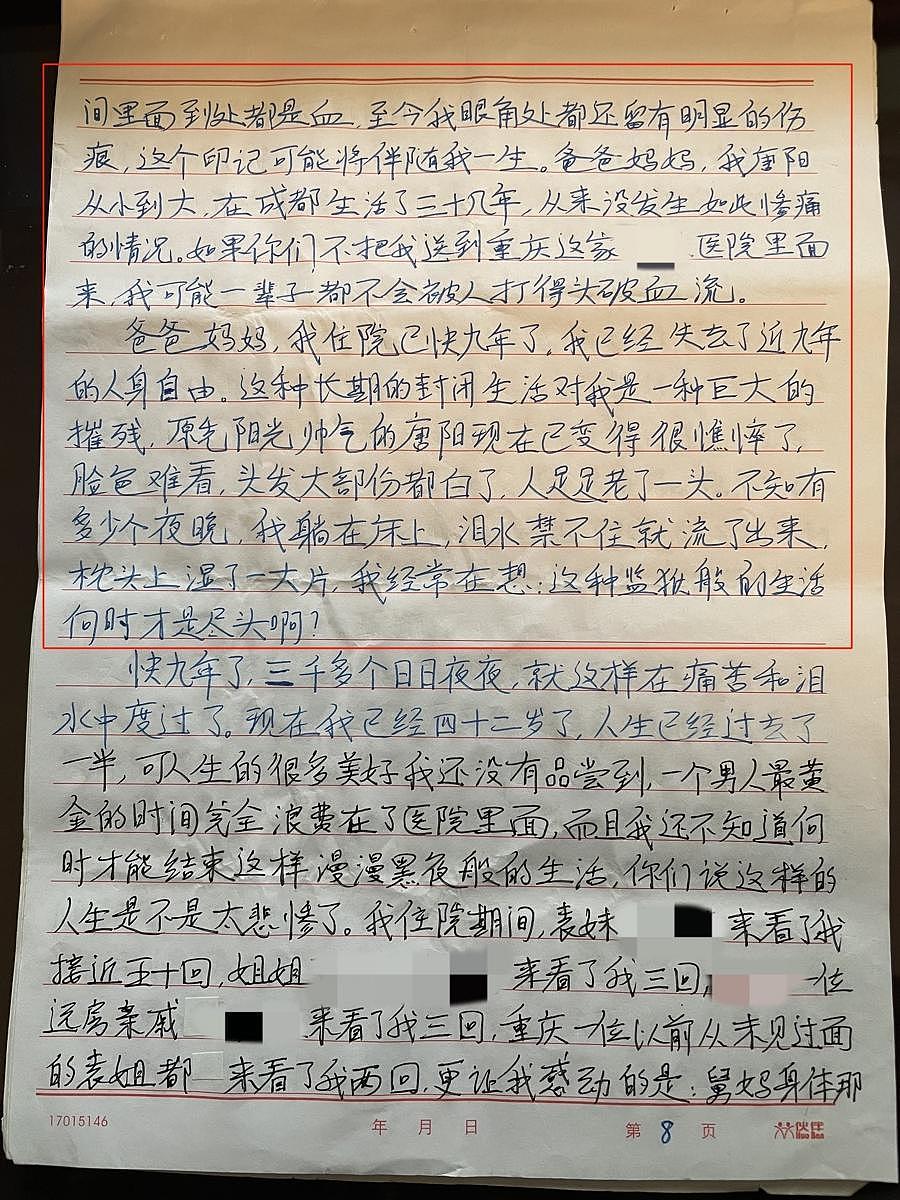 间里面到处都是血，至今我眼角处都还留有明显的伤
痕，这个印记可能将伴随我一生。爸爸妈妈，我唐阳
从小到大，在成都生活了三十几年，从来没发生如此惨痛
的情况。如果你们不把我送到重庆这家 医院里面
来，我可能一辈子都不会被人打得头破血流。
爸爸妈妈，我住院已快九年了，我已经失去了近九年
的人身自由。这种长期的封闭生活对我是一种巨大的
摧残，原先阳光帅气的唐阳现在已变得很憔悴了，
脸色难看，头发大部份都白了，人足足老了一头。不知有
多少个夜晚，我躺在床上，泪水禁不住就流了出来，
枕头上湿了一大片，我经常在想：这种监狱般的生活
何时才是尽头啊？
快九年了，三千多个日日夜夜，就这样在痛苦和泪
水中度过了。现在我已经四十二岁了，人生已经过去了
一半，可人生的很多美好我还没有品尝到，一个男人最黄
金的时间完全浪费在了医院里面，而且我还不知道何
时才能结束这样漫漫黑夜般的生活，你们说这样的
人生是不是太悲惨了。我住院期间，表妹 来看了我
接近五十回，姐姐 来看了我三回， 一位
远房亲戚 来看了我三回，重庆一位以前从未见过面
的表姐都 来看了我两回，更让我感动的是：舅妈身体那
17015146 年 月 日 第 8 页 伙伴